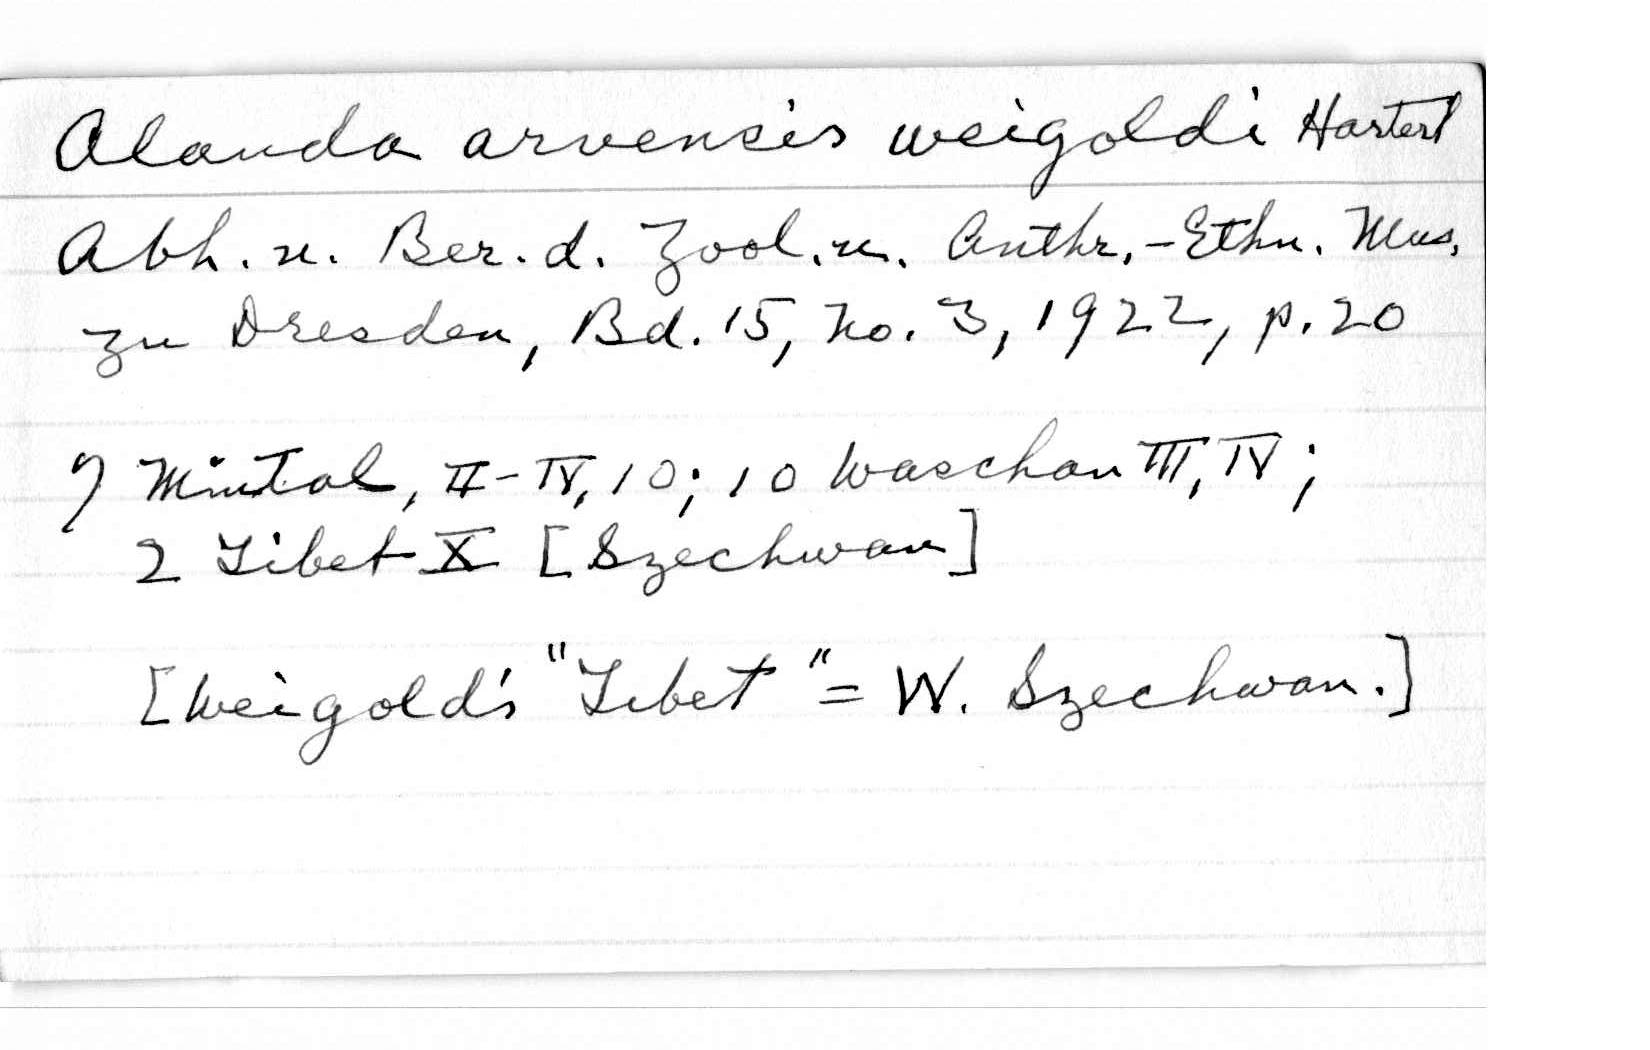 Alauda arvensis weigoldi Hartert
Abh. u. Ber. d. Zool. u. Anthr.-Ethn. Mus.
zu Dresden, Bd. 15, No. 3, 1922, p. 20
7 Mintal, II-IV, 10; 10 Waschan III, IV;
2 Tibet X [Szechwan]
[Weigold's "Tibet" = W. Szechwan.]